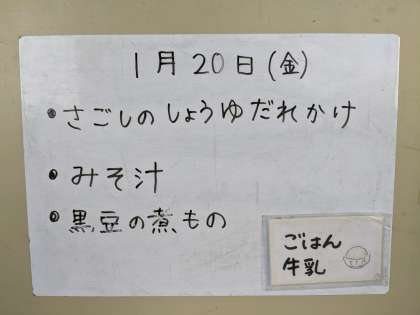 1月20日(金)
・さごしのしょうゆだれかけ
・みそ汁
・黒豆の煮もの
ごはん
牛乳